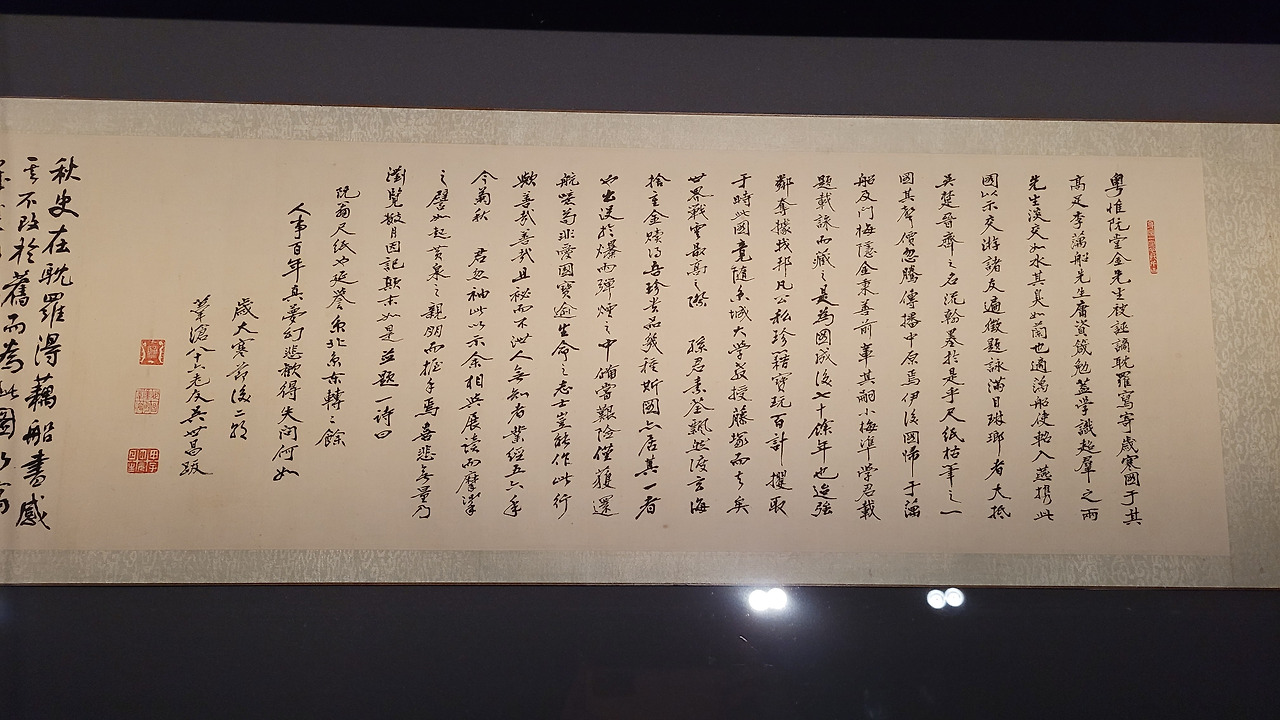 粤惟阮堂金先生被誣謫耽羅寫寄歲寒圖于其
高足李藕船先生庸資箴勉蓋學識超羣之兩
先生淡交如水其臭如蘭也適藕船使軺入燕携此
圖以示交游諸友遍徵題詠滿目琳瑯者大抵
吳楚晉齊之名流翰墨於是乎尺紙枯筆之一
圖其聲價忽騰傳播中原焉伊後圖歸于藕
船及門梅隱金秉善前輩其嗣小梅準學君載
題載詠而藏之是爲圖成後七十餘年也迨強
鄰奪據我邦凡公私珍籍寶玩百計攫取
于時此圖竟隨京城大學教授藤塚而去矣
世界戰雲最高之際 孫君素荃飄然渡玄海
捨重金贖得吾珍貴品幾種斯圖亦居其一者
也出送於爆雨彈煙之中備嘗艱險僅獲還
航嗟苟非愛國寶逾生命之志士豈能作此行
歟善哉善哉且秘而不泄人無知者業經五六年
今菊秋 君忽袖此以示余相與展讀而摩挲
之譬如起黃泉之親朋而握手焉喜悲無量乃
瀏覽數月因記顛末如是並題一詩曰
阮翁尺紙也延譽京北京東轉轉餘
人事百年真夢幻悲歡得失問何如
歲大寒前後二
葦滄八十六老友吳世昌跋
秋史在耽羅得藕船書感
其不改於舊而為此圖以寄